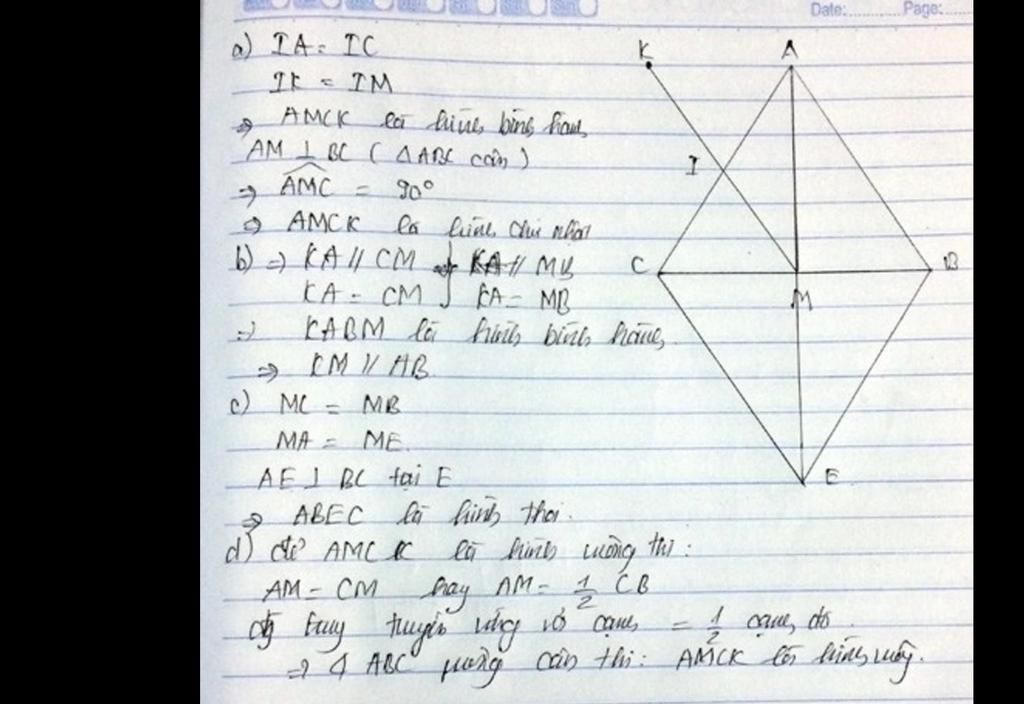 Date: Page:
a) IA = IC
IK = IM
⇒ AMCK là hình bình hành
AM ⊥ BC (ΔABC cân)
⇒ AMC = 90°
⇒ AMCK là hình chữ nhật
b) ⇒ KA // CM KA // MB
KA = CM KA = MB
⇒ KABM là hình bình hành
⇒ KM // AB
c) MC = MB
MA = ME
AE ⊥ BC tại E
⇒ ABEC là hình thoi.
d) để AMCK là hình vuông thì:
AM = CM hay AM = 1/2 CB
trung tuyến ứng với cạnh = 1/2 cạnh đó
⇒ Δ ABC vuông cân thì: AMCK là hình vuông.
K A
I
C B
M
E